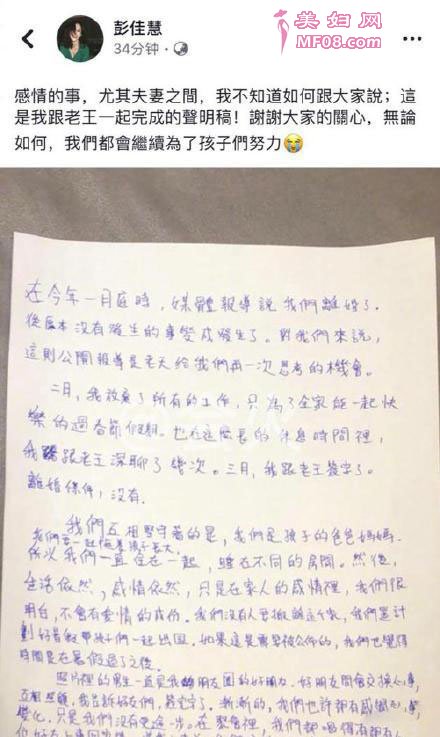 美妇网
MF08.com
彭佳慧
34分钟
感情的事，尤其夫妻之間，我不知道如何跟大家說；這
是我跟老王一起完成的聲明稿！謝謝大家的關心，無論
如何，我們都會繼續為了孩子們努力😭
在今年一月底時，媒體報導說我們離婚了．
從原本沒有發生的事變成發生了．對我們來說，
這則公開報導是老天給我們再一次思考的機會．
二月，我放棄了所有的工作，只為了全家能一起快
樂的過春節假期．也在這麼長的休息時間裡，
我跟老王深聊了幾次．三月，我跟老王簽字了．
離婚條件，沒有．
我們互相堅守著的是，我們是孩子的爸爸媽媽．
我們要一起陪著孩子長大．
所以我們一直住在一起，睡在不同的房間．然後，
生活依然，感情依然，只是在家人的感情裡，我們很
明白，不會有愛情的成份．我們沒有人要搬離這個家，我們是計
劃好暑假帶孩子們一起出國．如果這是需要被公佈的，我們也覺得
時間是在暑假過了之後．
照片裡的男生一直是我朋友圈的好朋友．好朋友間會交換心事，
互相照顧，我告訴好友們，簽字了．漸漸的，我們也許都有感覺
變化．只是我們沒有更進一步．在聚會裡，我們都喝得有